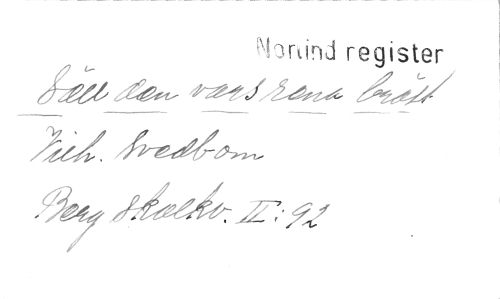 Norlind register
Säll den vars rena bröst
Vilh. Svedbom
Berg Skolkv. II: 92